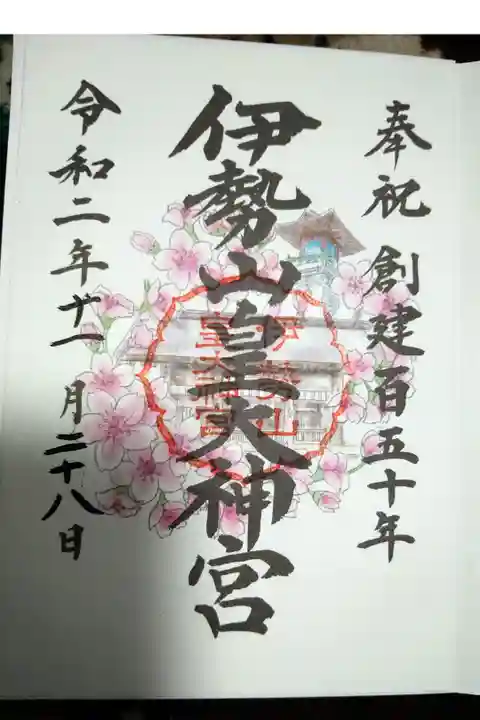 奉祝 創建百五十年
伊勢山皇大神宮
伊勢山
皇大神宮
令和二年十一月二十八日